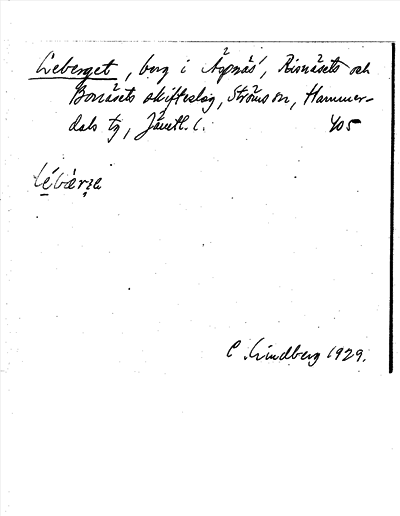 Lieberget, berg i Äspnäs, Risnäsets och
Bonäsets skifteslag, Ströms sn, Hammer-
dals tg, Jämtl. l. 405
C. Lindberg 1929.